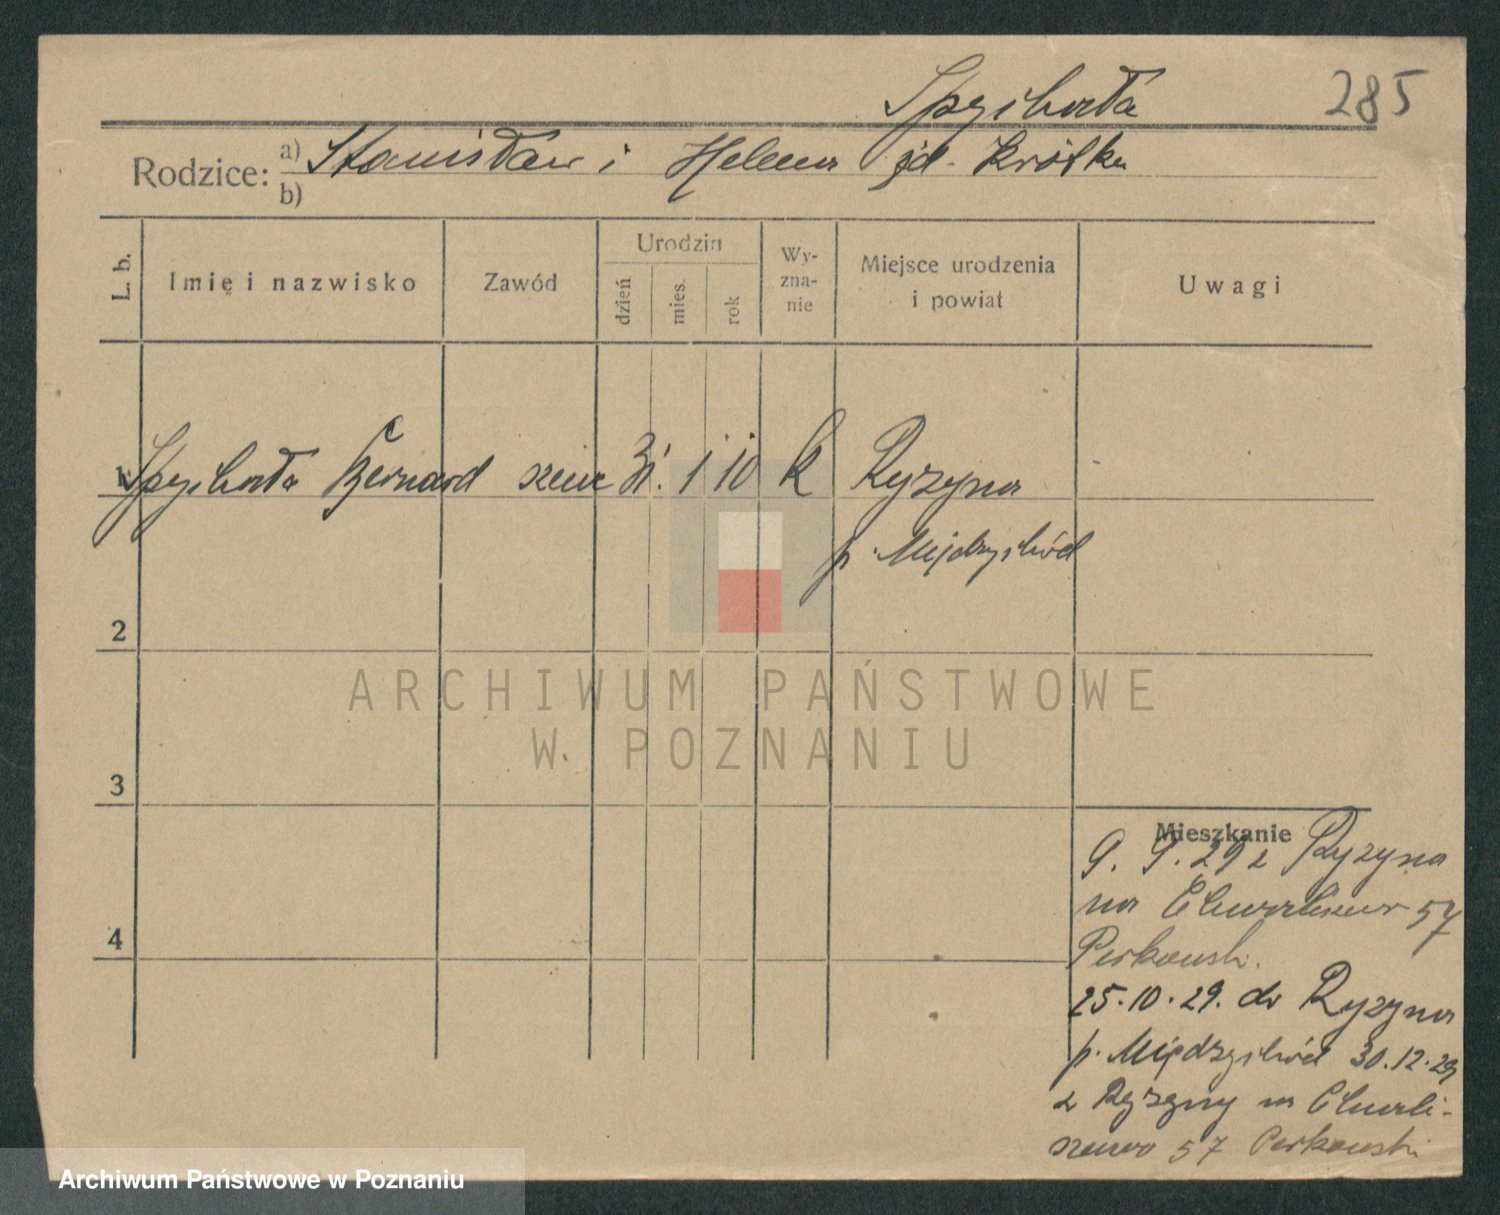 Spychała
285
Rodzice: a) Stanisław i Helena zd. Krótka
b)
L. b.
Imię i nazwisko
Zawód
Urodzin
dzień
mies.
rok
Wy-
zna-
nie
Miejsce urodzenia
i powiat
Uwagi
1 Spychała Bernard szewc 31. 1 10 k Ryzyna
p. Międzychód
2
ARCHIWUM PAŃSTWOWE
W POZNANIU
3
Mieszkanie
9. 9. 29 z Ryzyna
na Chwaliszewo 57
Perkowski.
4
25.10.29. do Ryzyna
p. Międzychód 30.12.29
z Ryzyny na Chwali-
szewo 57 Perkowski
Archiwum Państwowe w Poznaniu